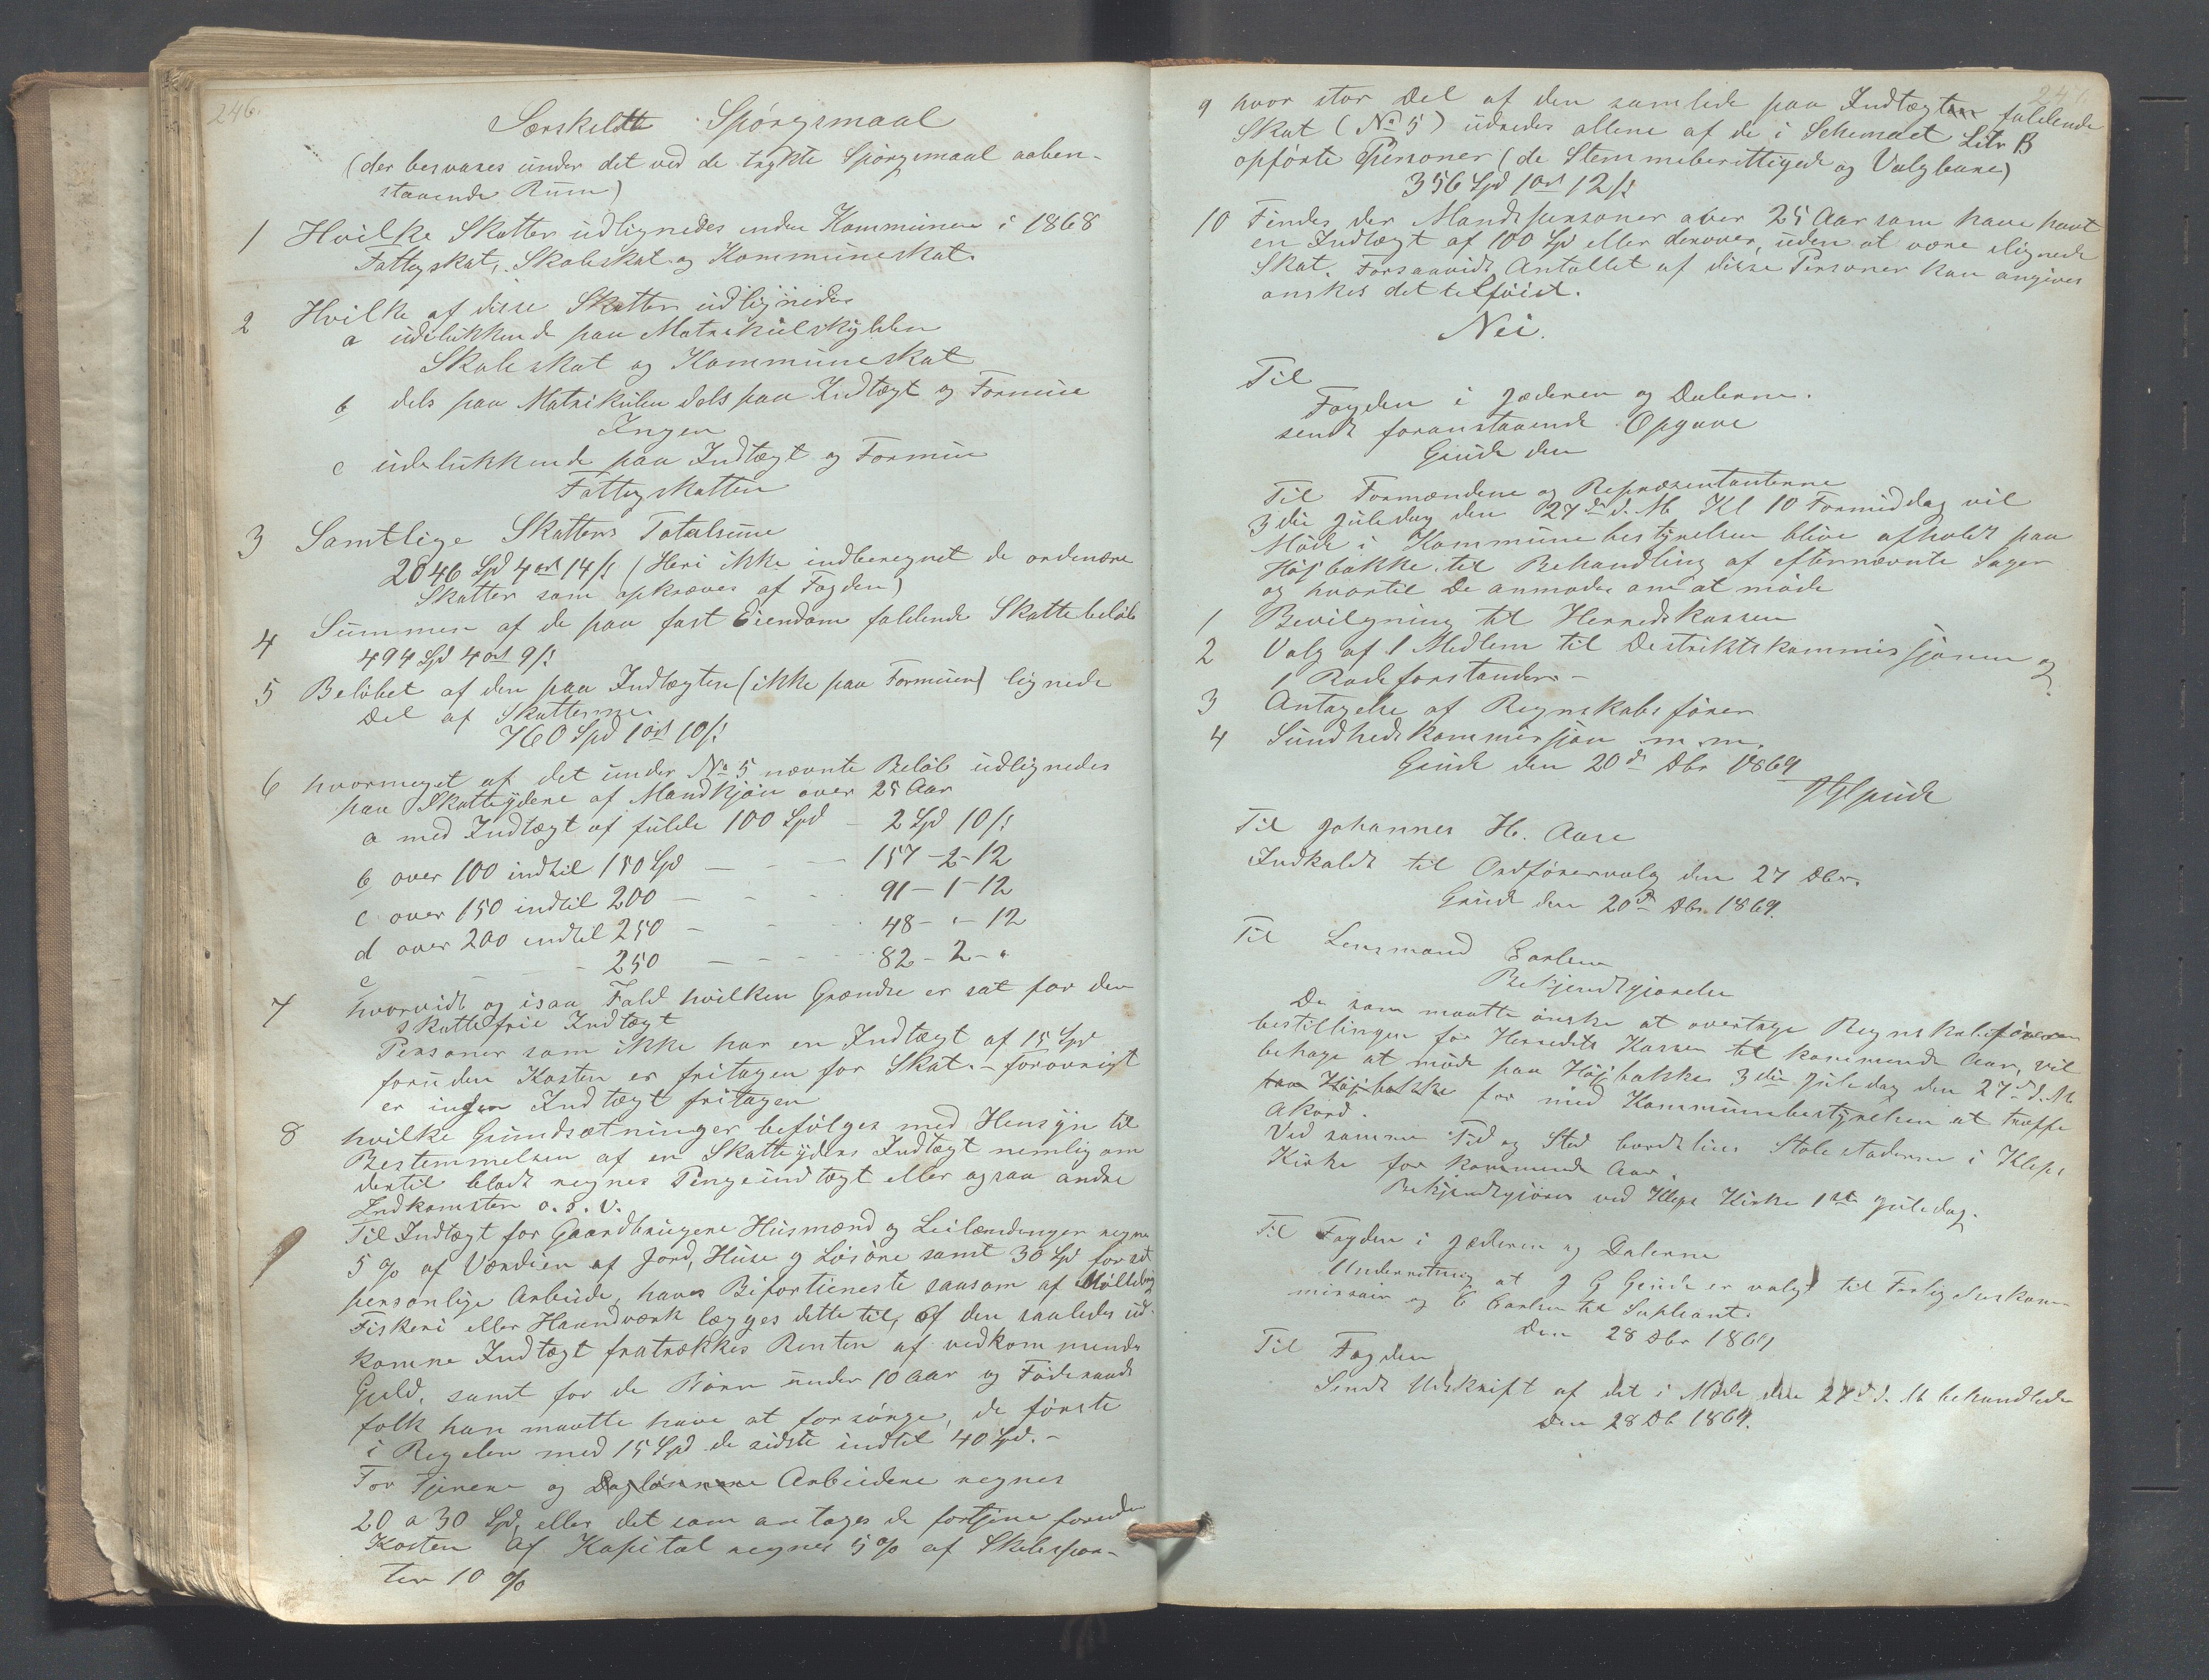 246.
Særskildte Spörgsmaal
(der besvares under det ved de trykte Spörgsmaal aaben-
staaende Rum)
1 Hvilke Skatter udlignedes inden Kommunen i 1868
Fattigskat, Skoleskat og Kommuneskat.
2 Hvilke af disse Skatter udlignedes
a udelukkende paa Matrikulskylden
Skoleskat og Kommuneskat
b dels paa Matrikulen dels paa Indtægt og Formue
Ingen
c udelukkende paa Indtægt og Formue
Fattigskatten
3 Samtlige Skatters Totalsume
2046 Spd 4 ort 14 s (Heri ikke indberegnet de ordenære
Skatter som opkræves af Fogden)
4 Summen af de paa fast Eiendom faldende Skattebeløb
494 Spd 4 ort 9 s
5 Beløbet af den paa Indtægten (ikke paa Formuen) lignede
Del af Skatterne
760 Spd 1 ort 10 s
6 hvormeget af det under No 5 nævnte Beløb udlignedes
paa Skatteydere af Mandkjön over 25 Aar
a med Indtægt af fulde 100 Spd - 2 Spd 10 s
b over 100 indtil 150 Spd - - - 157 - 2 - 12
c over 150 indtil 200 - - - 91 - 1 - 12
d over 200 indtil 250 - - - 48 - " - 12
e - - - 250 - - - 82 - 2 - "
7 hvorvidt og isaa Fald hvilken Grændse er sat for den
skattefrie Indtægt
Personer som ikke har en Indtægt af 15 Spd
foruden Kosten er fritagen for Skat. - forøvrigt
er ingen Indtægt fritagen
8 hvilke Grundsætninger befølges med Hensyn til
Bestemmelsen af en Skatteyders Indtægt nemlig om
dertil blodt regnes Pengeindtægt eller ogsaa andre
Indkomster o. s. v.
Til Indtægt for Gaardbrugere Husmænd og Leilændinger regnes
5 % af Værdien af Jord, Huse og Løsöre samt 30 Spd for sit
personlige Arbeide, haves Bifortieneste saasom af
Fiskeri eller Haandværk lægges dette til, af den saaledes ud-
komne Indtægt fratrækkes Renten af vedkommendes
Gjeld, samt for de Börn under 10 Aar og Föderaads
folk han maatte have at forsörge, de förste
i Regelen med 15 Spd de sidste indtil 40 Spd. -
For Tjenere og Daglönnere Arbeidere regnes
20 a 30 Spd, eller det som antages de fortjene foruden
Kosten Af Kapital regnes 5 % af Skibspar-
ter 10 %
9 hvor stor Del af den samlede paa Indtægten faldende
Skat (No 5) udredes allene af de i Schemaet Litr B
opførte Personer (de Stemmeberettigede og Valgbare)
356 Spd 1 ort 12 s
10 Findes der Mandspersoner over 25 Aar som have havt
en Indtægt af 100 Spd eller derover, uden at være ilignede
Skat. Forsaavidt Antallet af disse Personer kan angives
ønskes det tilföiet.
Nei.
Til
Fogden i Jæderen og Dalerne.
sendt foranstaaende Opgave
Grude den
Til Formændene og Repræsentanterne
3die Juledag den 27de d. M. Kl 10 Formiddag vil
Möde i Kommunebestyrelsen blive afholdt paa
Höjbakke, til Behandling af efternævnte Sager
og hvortil De anmodes om at möde
1 Bevilgning til Herredskassen
2 Valg af 1 Medlem til Destriktskommissjonen og
1 Rodeforstander -
3 Antagelse af Regnskabsförer
4 Sundhedskommissjon m. m.
Grude den 20de Dbr 1869
Til Johannes H. Aase
Indkaldt til Ordförervalg den 27 Dbr.
Grude den 20de Dbr 1869.
Til Lensmand Carlsen
Bekjendtgjørelse
De som maatte önske at overtage Regnskabsförer
bestillingen for Herredets Kassen til kommende Aar, vil
behage at möde paa Höjbakke 3die Juledag den 27de d. M
paa Höjbakke for med Kommunebestyrelsen at træffe
Akord.
Ved samme Tid og Sted bortleies Stolestaderne i Kleps
Kirke for kommende Aar.
Bekjendtgjöres ved Kleps Kirke 1ste Juledag.
Til Fogden i Jæderen og Dalerne
Underretning at J G Grude er valgt til Forligelseskom-
missair og C Carlsen til Supleant.
Den 28 Dbr 1869
Til Fogden
Sendt Udskrift af det i Möde den 27de d. M. behandlede
den 28 Db 1869.